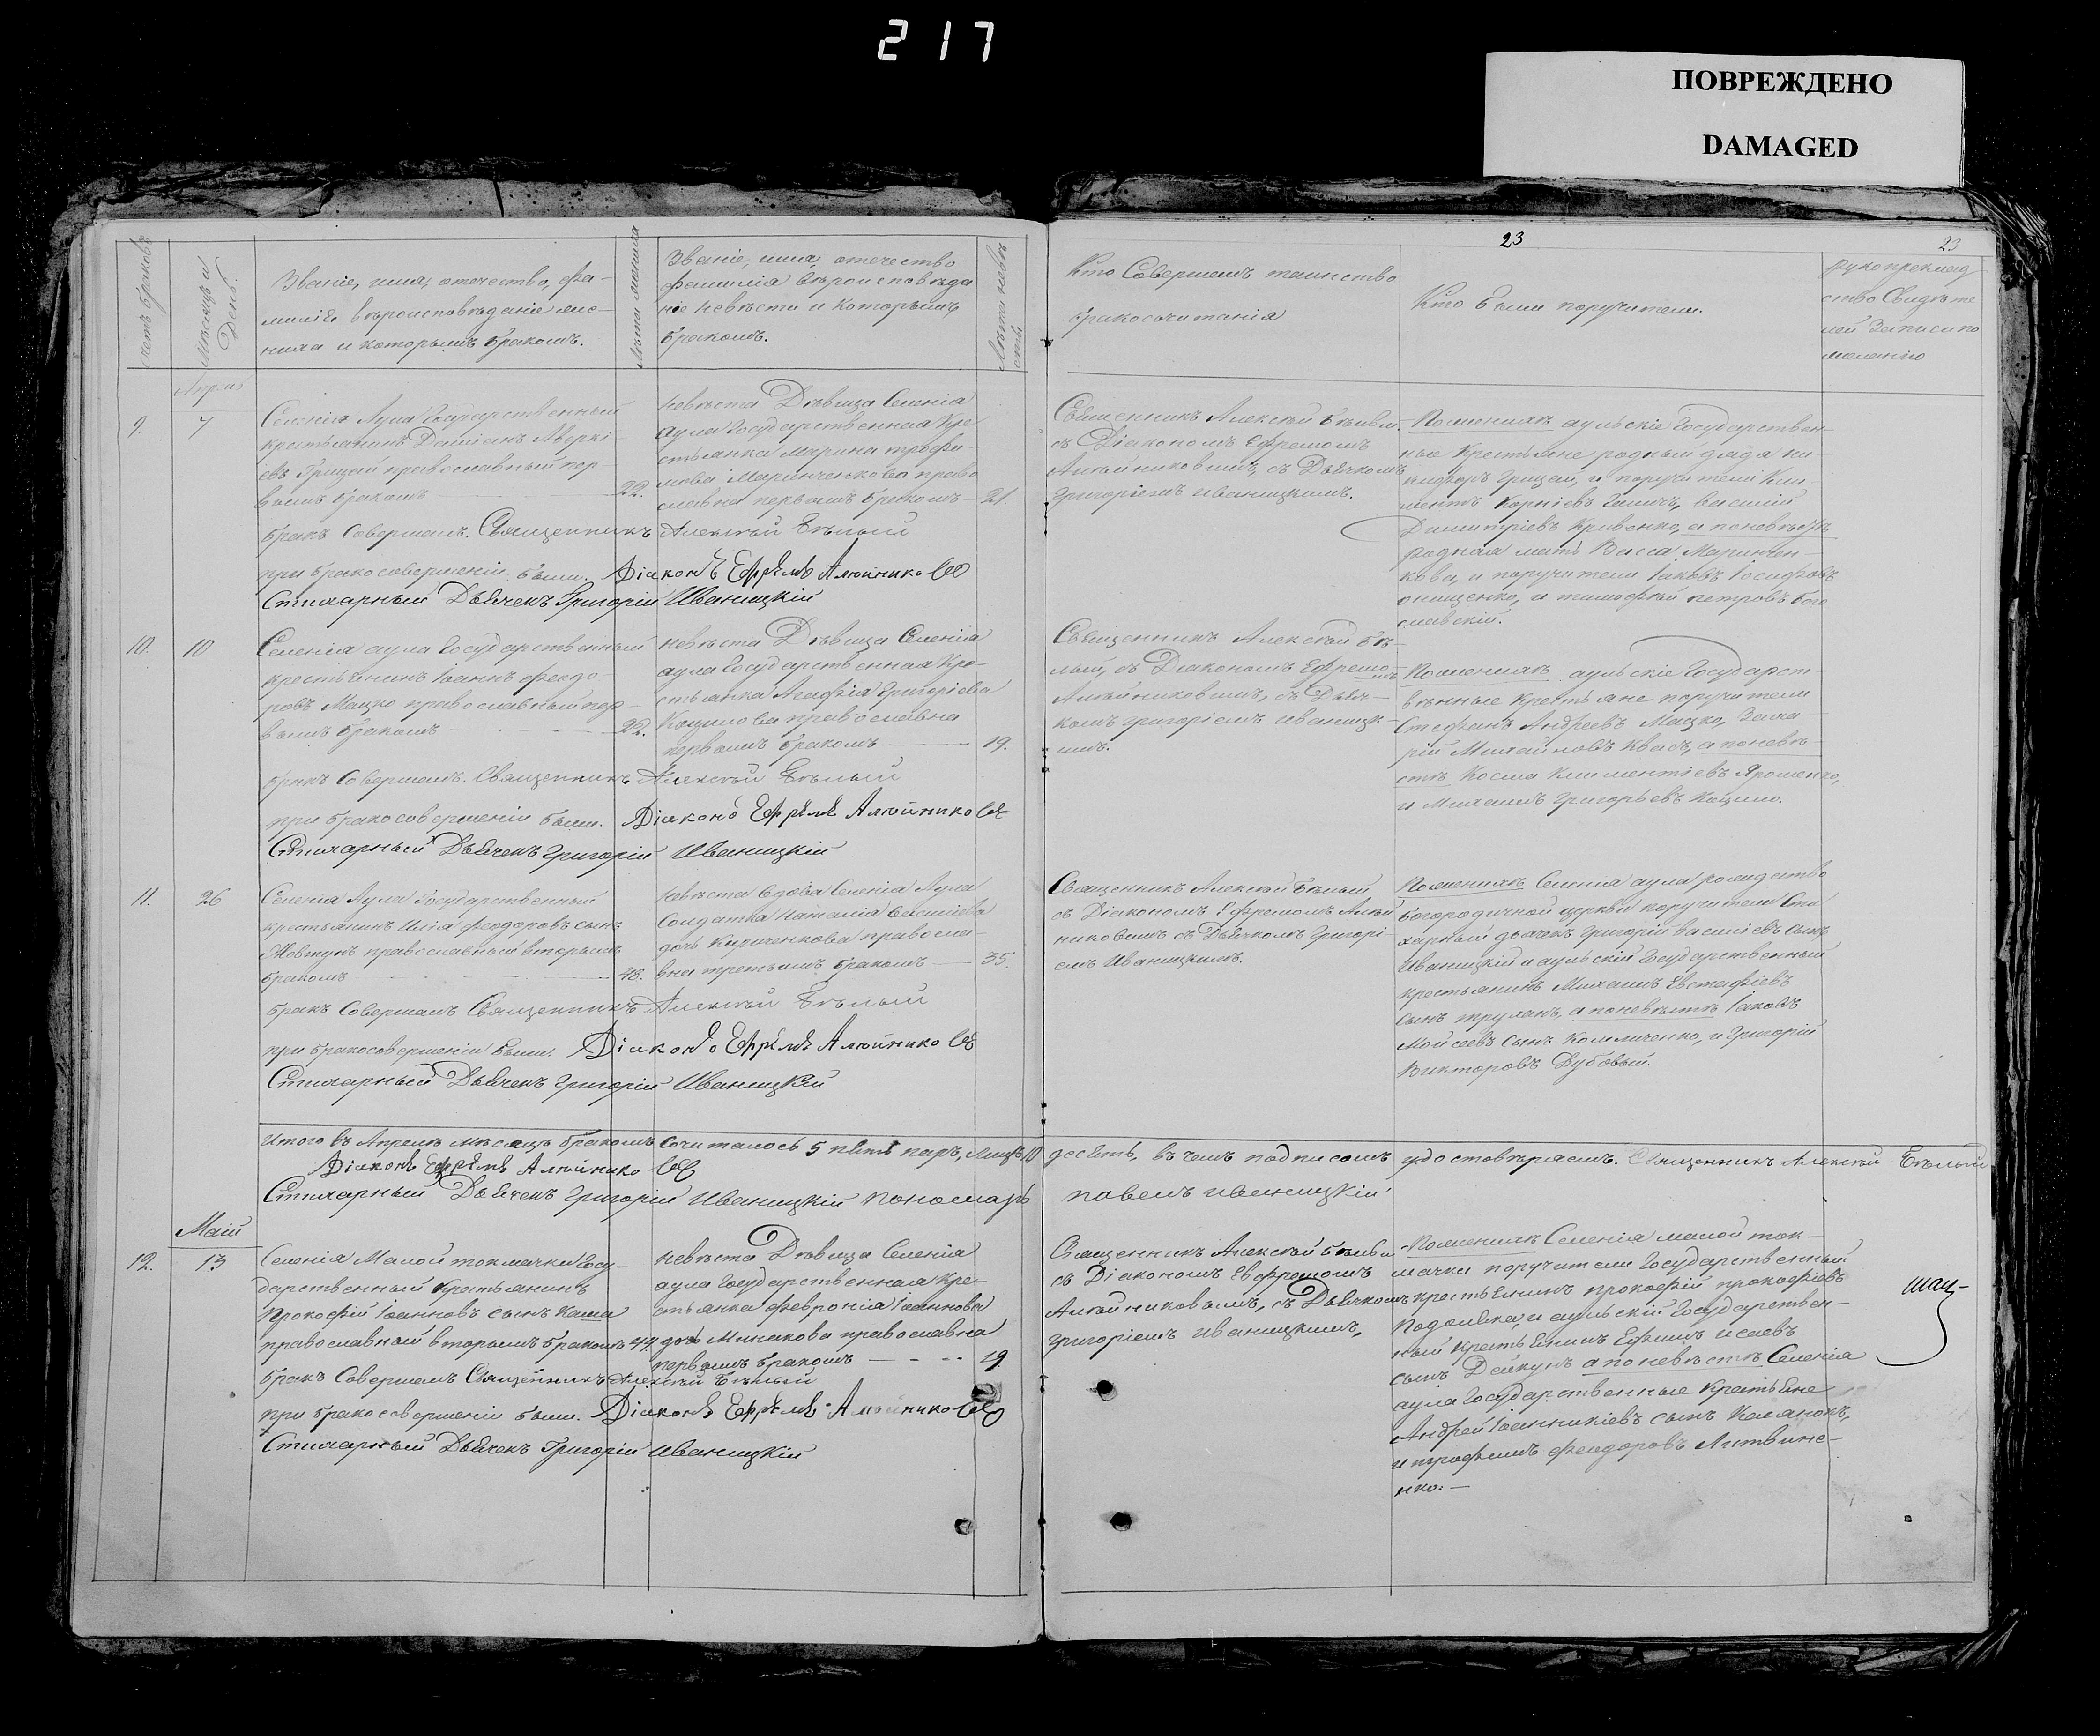 217
ПОВРЕЖДЕНО
DAMAGED
23
23
счетъ браковъ
Мѣсяцъ и День.
Званіе, имя, отечество, фа-
милія вѣроисповѣданіе же-
ниха и которымъ бракомъ.
Лѣта жениха
Званіе, имя, отечество
фамилія вѣроисповѣда
ніе невѣсты и которымъ
бракомъ.
Лѣта невѣ
сты
Кто Совершалъ таинство
бракосочитанія
Кто были поручители.
ство Свидѣте
лей Записи по
желанію
9.
7
Селенія Аула Государственный
крестьянинъ Даміанъ Аверкі
евъ Грицай православный пер-
вымъ бракомъ
22.
невѣста Дѣвица Селенія
Аула Государственная Кре
стьянка Марина трофи-
мова Маринченкова право
славна первымъ бракомъ
21.
съ Діакономъ Ефремомъ
Алейниковымъ, съ Дьячкомъ
Григоріемъ Иваницкимъ.
По женихѣ аульскіе Государствен-
ные Крестьяне родный дядя ни-
кифоръ Грицай, и поручители Кли-
Димитріевъ Кривенко, а по невѣстѣ
родная мать Васса Маринчен-
кова, и поручители Іаковъ Іосифовъ
онищенко, и тимофей петровъ Бого
славскій.
бракъ Совершалъ. Священникъ Алексѣй Бѣлый
при бракосовершеніи были. Діаконъ Ефремъ Алейниковъ
Стихарный Дьячекъ Григорій Иваницкій
10.
10
Селенія аула Государственный
крестьянинъ Іоаннъ феодо-
ровъ Мацко православный пер-
вымъ бракомъ
22.
невѣста Дѣвица Селенія
аула Государственная Кре-
стьянка Агафія Григоріева
Кацилова православна
первымъ бракомъ
19.
Священникъ Алексѣй Бѣ-
лый, съ Діакономъ Ефремомъ
Алейниковымъ, съ Дьяч-
комъ Григоріемъ Иваницк-
имъ.
По женихѣ аульскіе Государст-
венные крестьяне поручители
Стефанъ Андреевъ Мацко, Заха
рій Михайловъ Квасъ, а по невѣ-
стѣ Косма Климентіевъ Ярошенко,
и Михаилъ Григорьевъ Кацило.
бракъ Совершалъ. Священникъ Алексѣй Бѣлый
при бракосовершеніи были. Діаконъ Ефремъ Алейниковъ
Стихарный Дьячекъ Григорій Иваницкій
11.
26
Селенія Аула Государственный
крестьянинъ Илія феодоровъ сынъ
Жовтунъ православный вторымъ
бракомъ
48.
невѣста вдова Селенія Аула
Солдатка Наталія василіева
дочь Кириченкова правосла-
вна третьимъ бракомъ
35.
Священникъ Алексѣй Бѣлый
съ Діакономъ Ефремомъ Алей
никовымъ съ Дьячкомъ Григорі-
емъ Иваницкимъ.
По женихѣ Селенія аула рождество
богородичной церкви поручители Сти
харный дьячекъ Григорій василіевъ сынъ
Иваницкій и аульскій Государственный
крестьянинъ Михаилъ Евстафіевъ
сынъ трушъ, а по невѣстѣ Іаковъ
Мойсеевъ сынъ Коломиченко, и Григорій
Викторовъ Дубовый.
бракъ Совершалъ Священникъ Алексѣй Бѣлый
при бракосовершеніи были. Діаконъ Ефремъ Алейниковъ
Стихарный Дьячекъ Григорій Иваницкій
Итого въ Апрелѣ мѣсяцѣ бракомъ сочиталось 5 пять паръ, лицъ 10 десять, въ чемъ подписомъ удостовѣряемъ. Священникъ Алексѣй Бѣлый
Діаконъ Ефремъ Алейниковъ
Стихарный Дьячекъ Григорій Иваницкій пономарь павелъ иваницкій
Маій
12.
13
Селенія Малой токмачки Госу-
дарственный Крестьянинъ
Прокофій Іоанновъ сынъ Каша
православный вторымъ бракомъ 44.
невѣста Дѣвица Селенія
аула Государственная Кре-
стьянка феvронія Іоаннова
дочь Минакова православна
первымъ бракомъ
19
съ Діакономъ Евфремомъ
Алейниковымъ, съ Дьячкомъ
Григоріемъ Иваницкимъ,
По женихѣ Селенія малой ток-
мачки поручители Государственный
крестьянинъ прокофій прокофіевъ
Подолѣка, и аульскій Государствен-
ный крестьянинъ Ефимъ исаевъ
сынъ Дейкунъ а по невѣстѣ Селенія
аула Государственные Крестьяне
Андрей Іоанникіевъ сынъ
и трофимъ феодоровъ Литвине-
нко.—
бракъ Совершалъ Священникъ Алексѣй Бѣлый
при бракосовершеніи были. Діаконъ Ефремъ Алейниковъ
Стихарный Дьячекъ Григорій Иваницкій